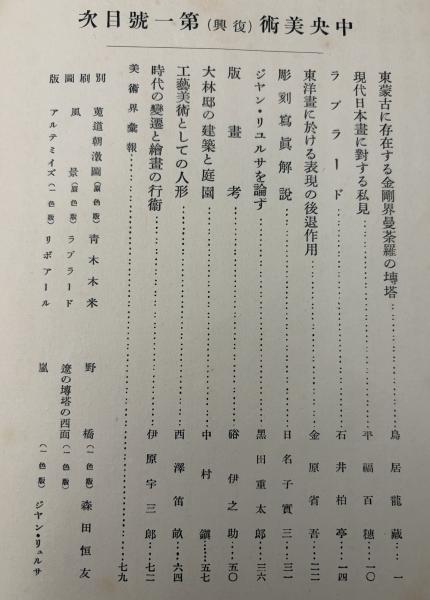 中央美術(復興)第一號目次
東蒙古に存在する金剛界曼荼羅の塼塔……鳥居龍藏…一
現代日本畫に對する私見……平福百穗…一〇
ラプラード……石井柏亭…一四
東洋畫に於ける表現の後退作用……金原省吾…二二
彫刻寫眞解說……日名子實三…三一
ジヤン・リユルサを論ず……黑田重太郎…三六
版畫考……硲伊之助…五〇
大林邸の建築と庭園……中村鎭…五七
工藝美術としての人形……西澤笛畝…六四
時代の變遷と繪畫の行衞……伊原宇三郎…七二
美術界彙報……七九
別刷圖版
菟道朝潡圖(原色版)靑木木米
風景(原色版)ラプラード
アルテミイズ(一色版)リボアール
野橋(一色版)森田恒友
遼の塼塔の西面(一色版)
嵐(一色版)ジヤン・リユルサ